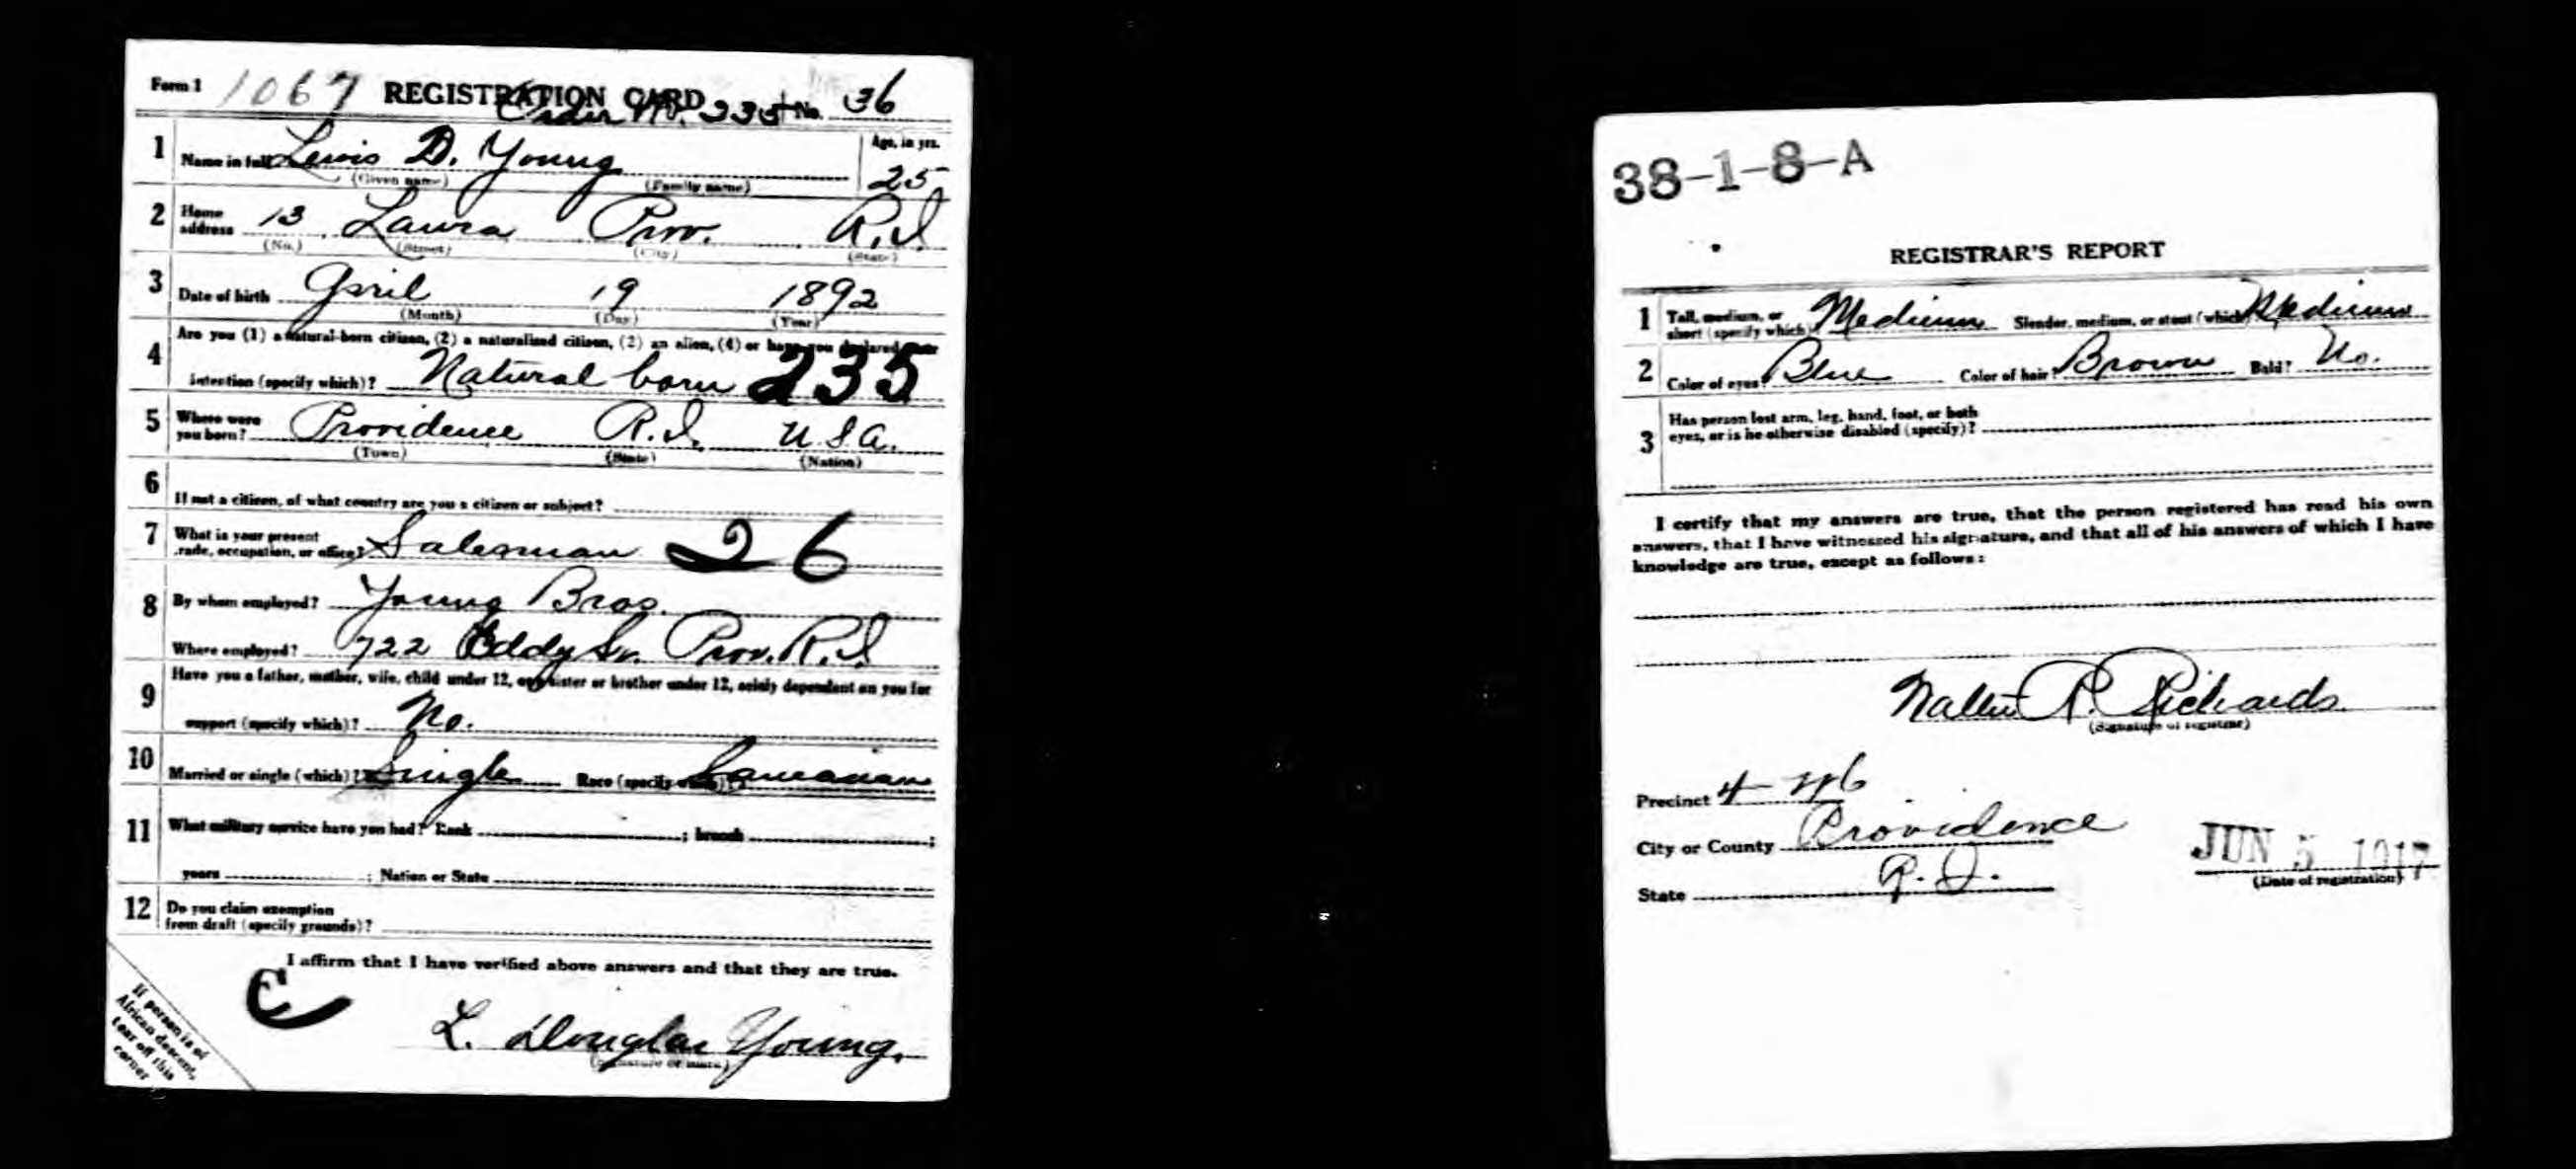 Form 1 1067 REGISTRATION CARD No. 36
Order No. 235
1 Name in full Lewis D. Young Age, in yrs.
(Given name) (Family name) 25
2 Home address 13 Laura Prov. R.I
(No.) (Street) (City) (State)
3 Date of birth April 19 1892
(Month) (Day) (Year)
4 Are you (1) a natural-born citizen, (2) a naturalized citizen, (2) an alien, (4) or have you declared your
intention (specify which)? Natural born 235
5 Where were you born? Providence R.I. U.S.A.
(Town) (State) (Nation)
6 If not a citizen, of what country are you a citizen or subject?
7 What is your present
trade, occupation, or office? Salesman 26
8 By whom employed? Young Bros.
Where employed? 722 Eddy St. Prov. R.I
9 Have you a father, mother, wife, child under 12, or a sister or brother under 12, solely dependent on you for
support (specify which)? No.
10 Married or single (which)? Single Race (specify which)?
11 What military service have you had? Rank ; branch ;
years ; Nation or State
12 Do you claim exemption
from draft (specify grounds)?
I affirm that I have verified above answers and that they are true.
C
L. Douglas Young.
(Signature or mark)
If person is of
African descent,
tear off this
corner
38-1-8-A
REGISTRAR'S REPORT
1 Tall, medium, or
short (specify which)? Medium Slender, medium, or stout (which)? Medium
2 Color of eyes? Blue Color of hair? Brown Bald? No.
3 Has person lost arm, leg, hand, foot, or both
eyes, or is he otherwise disabled (specify)?
I certify that my answers are true, that the person registered has read his own
answers, that I have witnessed his signature, and that all of his answers of which I have
knowledge are true, except as follows:
Walter R. Richards
(Signature of registrar)
Precinct 4
City or County Providence
State R.I.
JUN 5 1917
(Date of registration)